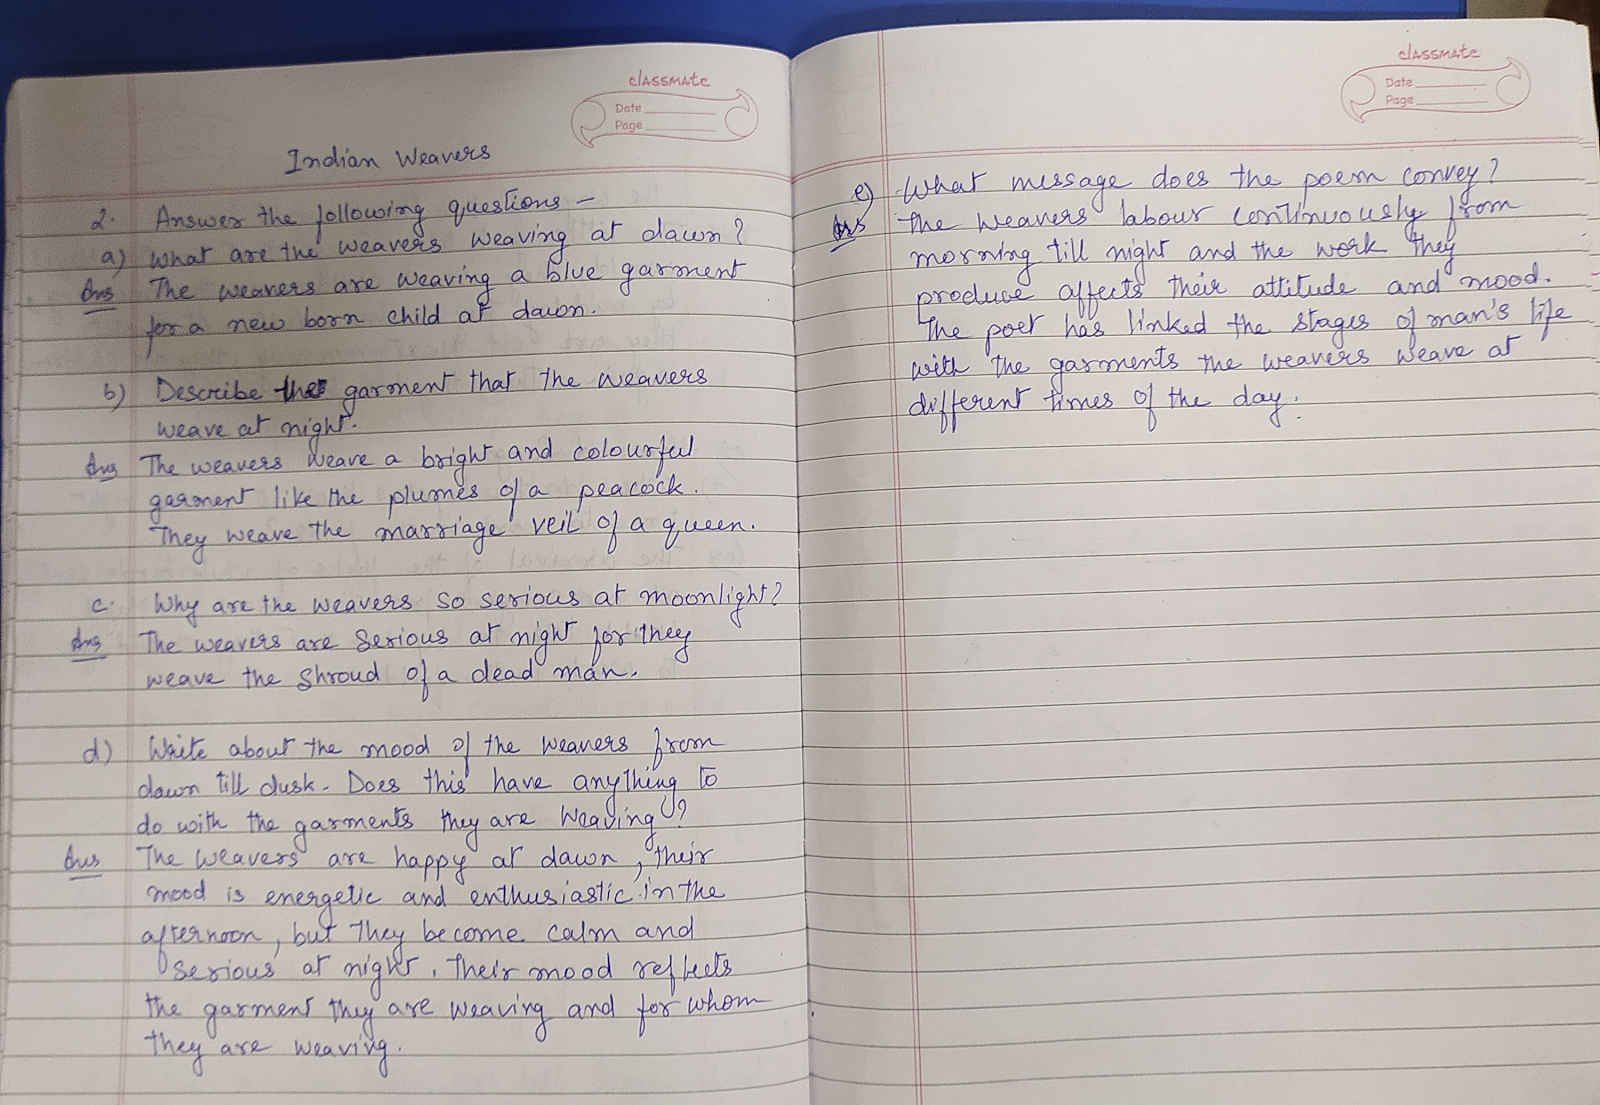 classmate
Date
Page
Indian Weavers
2. Answer the following questions –
a) What are the weavers weaving at dawn?
Ans The weavers are weaving a blue garment
for a new born child at dawn.
b) Describe the garment that the weavers
weave at night.
Ans The weavers weave a bright and colourful
garment like the plumes of a peacock.
They weave the marriage veil of a queen.
c. Why are the weavers so serious at moonlight?
Ans The weavers are serious at night for they
weave the shroud of a dead man.
d) Write about the mood of the weavers from
dawn till dusk. Does this have anything to
do with the garments they are weaving?
Ans The weavers are happy at dawn, their
mood is energetic and enthusiastic in the
afternoon, but they become calm and
serious at night. Their mood reflects
the garment they are weaving and for whom
they are weaving.
classmate
Date
Page
e) What message does the poem convey?
Ans The weavers labour continuously from
morning till night and the work they
produce affects their attitude and mood.
The poet has linked the stages of man's life
with the garments the weavers weave at
different times of the day.